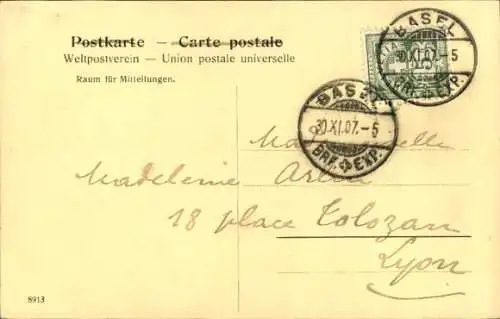 Postkarte – Carte postale
Weltpostverein – Union postale universelle
Raum für Mitteilungen.
BASEL
30.XI.07.-5
BRF. EXP.
BASEL
30.XI.07.-5
BRF. EXP.
Mademoiselle
Madeleine
18 place Tolozan
Lyon
8913